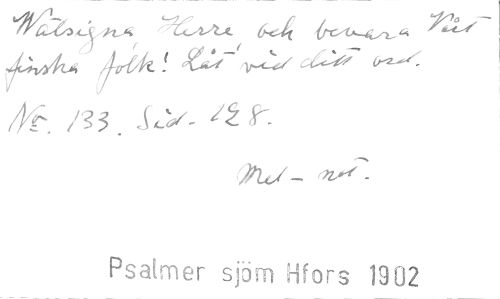 Wälsigna, Herre, och bevara Vårt
finska folk! Låt vid ditt ord.
No. 133. Sid. 128.
Mel-not.
Psalmer sjöm Hfors 1902